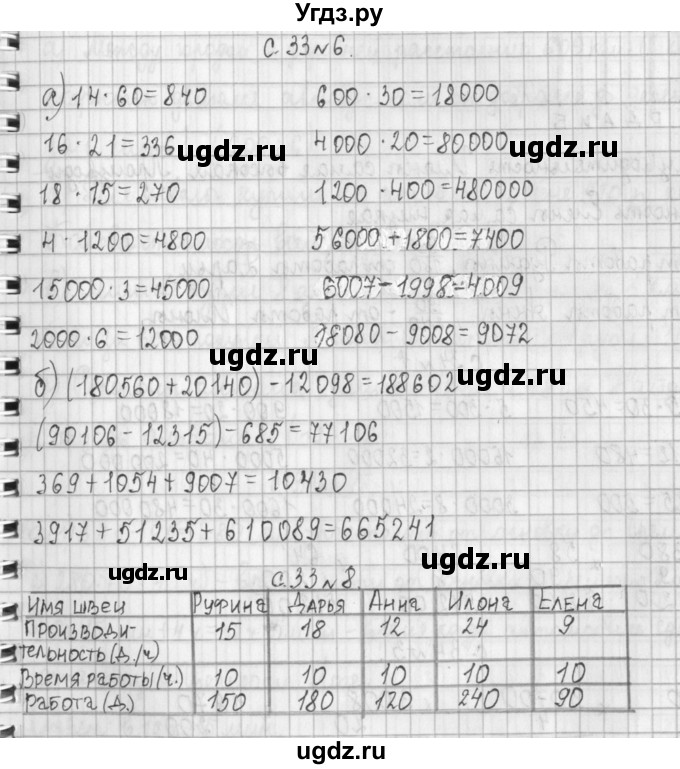 Угдз.ру
с. 33 №6.
а) 14·60=840 600·30=18000
16·21=336 4000·20=80000
ugdz.ru ugdz.ru
18·15=270 1200·400=480000
4·1200=4800 56000+1800=7400
15000·3=45000 6007-1998=4009
2000·6=12000 18080-9008=9072
ugdz.ru
б) (180560+20140)-12098=188602
ugdz.ru
(90106-12315)-685=77106
369+1054+9007=10430
3917+51235+610089=665241
ugdz.ru ugdz.ru
с. 33 №8.
Имя швеи Руфина Дарья Анна Илона Елена
Производи- 15 18 12 24 9
тельность (д./ч)
Время работы (ч.) 10 10 10 10 10
Работа (д.) 150 180 120 240 90
ugdz.ru